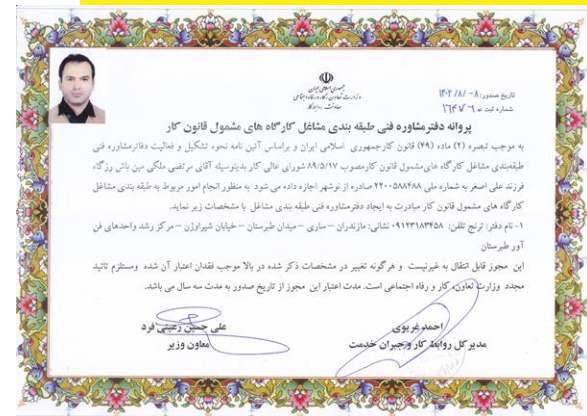 جمهوری اسلامی ایران
وزارت تعاون، کار و رفاه اجتماعی
معاونت روابط کار
تاریخ صدور:
شماره ثبت
پروانه دفتر مشاوره فنی طبقه بندی مشاغل کارگاه های مشمول قانون کار
به موجب تبصره (۲) ماده (۴۹) قانون کار جمهوری اسلامی ایران و براساس آئین نامه نحوه تشکیل و فعالیت دفاتر مشاوره فنی
طبقه‌بندی مشاغل کارگاه های مشمول قانون کار مصوب ۸۹/۵/۱۷ شورای عالی کار بدینوسیله آقای مرتضی ملکی مین باش رزگاه
فرزند علی اصغر به شماره ملی ۲۲۰۰۵۸۸۴۸۸ صادره از نوشهر اجازه داده می شود به منظور انجام امور مربوط به طبقه بندی مشاغل
کارگاه های مشمول قانون کار مبادرت به ایجاد دفتر مشاوره فنی طبقه بندی مشاغل با مشخصات زیر نماید.
۱- نام دفتر: ترنج تلفن: ۰۹۱۲۳۱۸۳۴۵۸ نشانی: مازندران – ساری – میدان طبرستان – خیابان شیراوژن – مرکز رشد واحدهای فن
آور طبرستان
این مجوز قابل انتقال به غیر نیست و هرگونه تغییر در مشخصات ذکر شده در بالا موجب فقدان اعتبار آن شده ومستلزم تائید
مجدد وزارت تعاون، کار و رفاه اجتماعی است. مدت اعتبار این مجوز از تاریخ صدور به مدت سه سال می باشد.
احمد غریوی
مدیر کل روابط کار و جبران خدمت
علی حسین رعیتی فرد
معاون وزیر